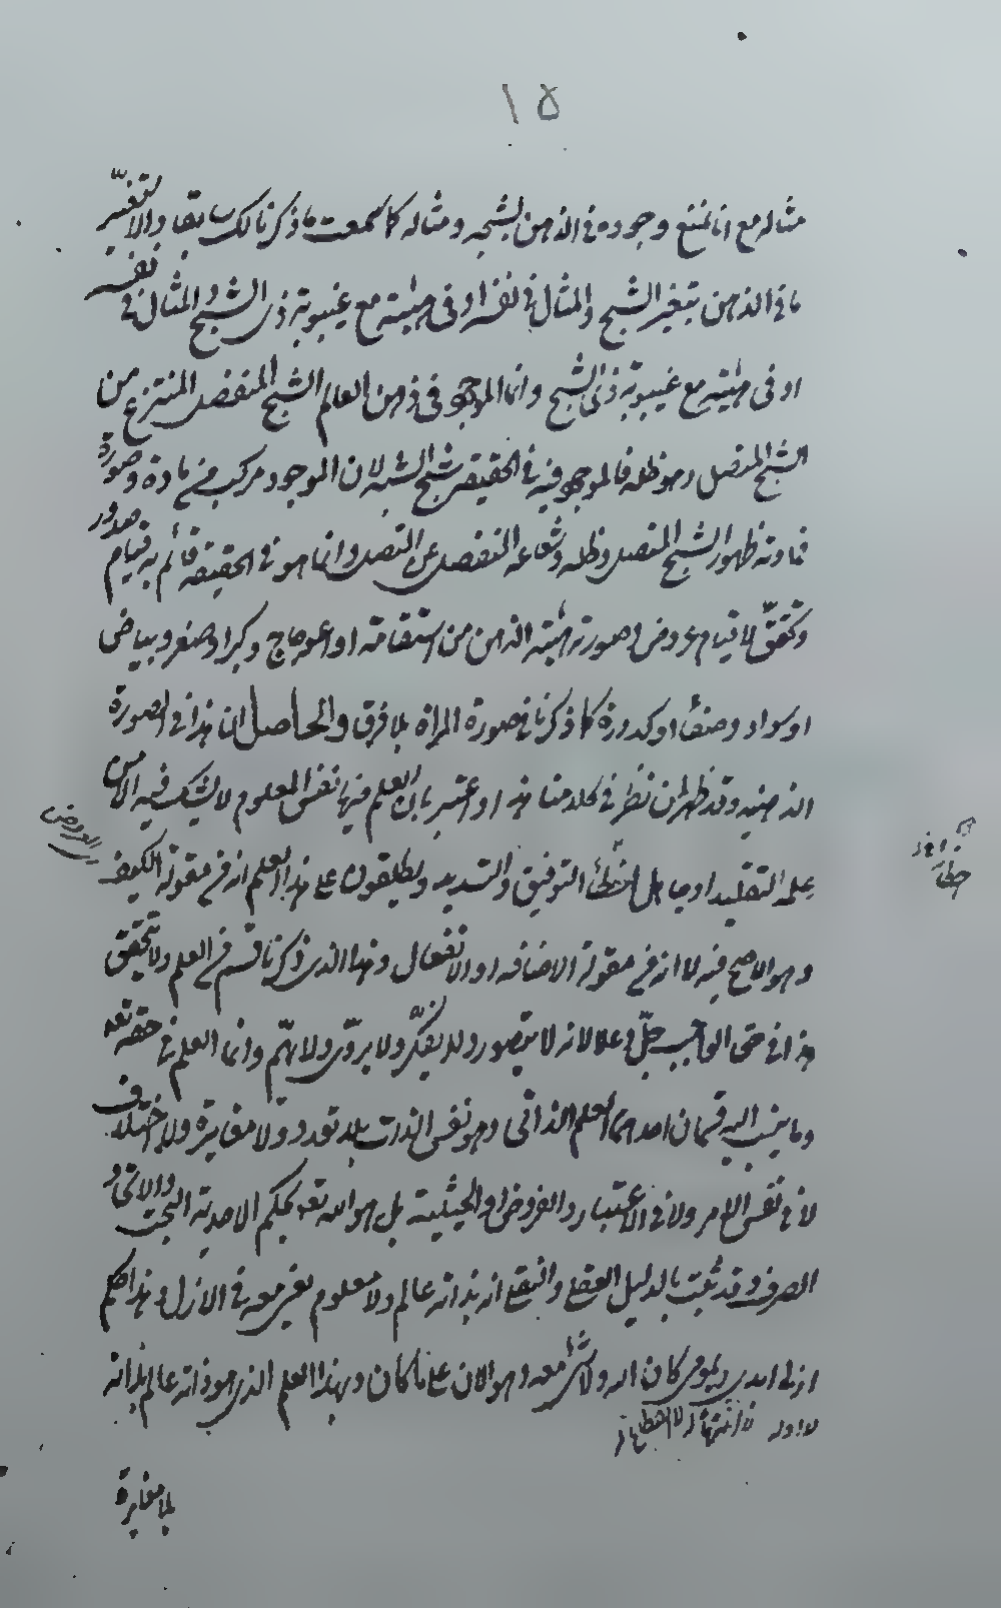 ١٥
مثاله مع انا نمنع وجوده في الذهن بشبحه ومثاله كما سمعت ما ذكرنا لك سابقا والا لتغير
ما في الذهن بتغير الشبح والمثال في نفسه او في هيئته مع غيبوبة ذي الشبح والمثال في نفسه
او في هيئته مع غيبوبة ذي الشبح وانما الموجود في ذهن العالم الشبح المنفصل المنتزع من
الشبح المتصل وهو ظله فالموجود فيه في الحقيقة شبح الشبه لان الموجود مركب من مادة وصورة
فمادته ظهور الشبح المتصل وظله وشعاعه المنفصل عن المتصل وانما هو في الحقيقة قائم به قيام صدور
وتحقق لا قيام عروض وصورته هيئة الذهن من استقامة او اعوجاج وكبر او صغر وبياض
او سواد وصفاء او كدورة كما ذكرنا في صورة المرآة بلا فرق والحاصل ان هذا في الصورة
الذهنية وقد ظهر لمن نظر في كلامنا هذا واعتبر بان العلم فيها نفس المعلوم لا يشك فيه الا من
علمه التقليد او جاهل اخطأ التوفيق والتسديد ويطلقون على هذا العلم انه من مقولة الكيف
وهو الاصح فيه لا انه من مقولة الاضافة او الانفعال وهذا الذي ذكرنا قسم من العلم ولا يتحقق
هذا في حق الواجب جل وعلا لانه لا يتصور ولا يفكر ولا يروي ولا يهم وانما العلم في حقه تعالى
وما ينسب اليه قسمان احدهما العلم الذاتي وهو نفس الذات بلا تعدد ولا مغايرة ولا اختلاف
لا في نفس الامر ولا في الاعتبار والفرض والحيثية بل هو الله تعالى بحكم الاحدية البحت والاتحاد
الصرف وقد ثبت بالدليل العقلي والنقلي انه بذاته عالم ولا معلوم بغير معه في الازل وهذا حكم
ازلي ابدي ديمومي كان الله ولا شيء معه وهو الان على ما كان وبهذا العلم الذي هو ذاته عالم بذاته
بلا مغايرة
العروض